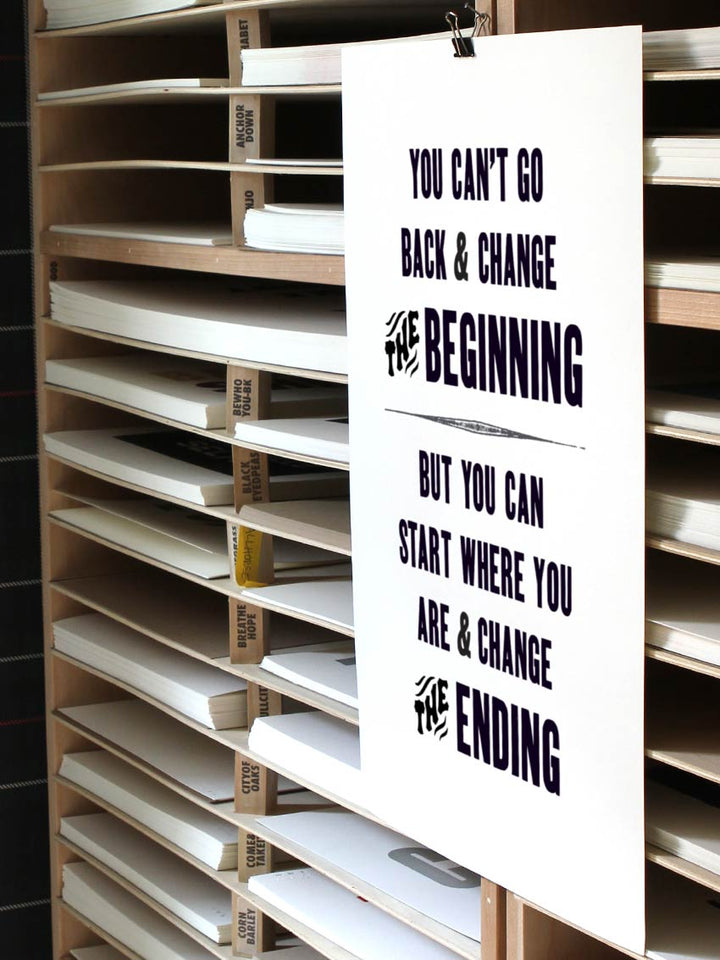 YOU CAN'T GO
BACK & CHANGE
THE BEGINNING
BUT YOU CAN
START WHERE YOU
ARE & CHANGE
THE ENDING
ANCHOR
DOWN
BEWHO
YOU-BK
BLACK
EYEDPEAS
BREATHE
HOPE
CITYOF
OAKS
COME&
TAKEIT
CORN
BARLEY